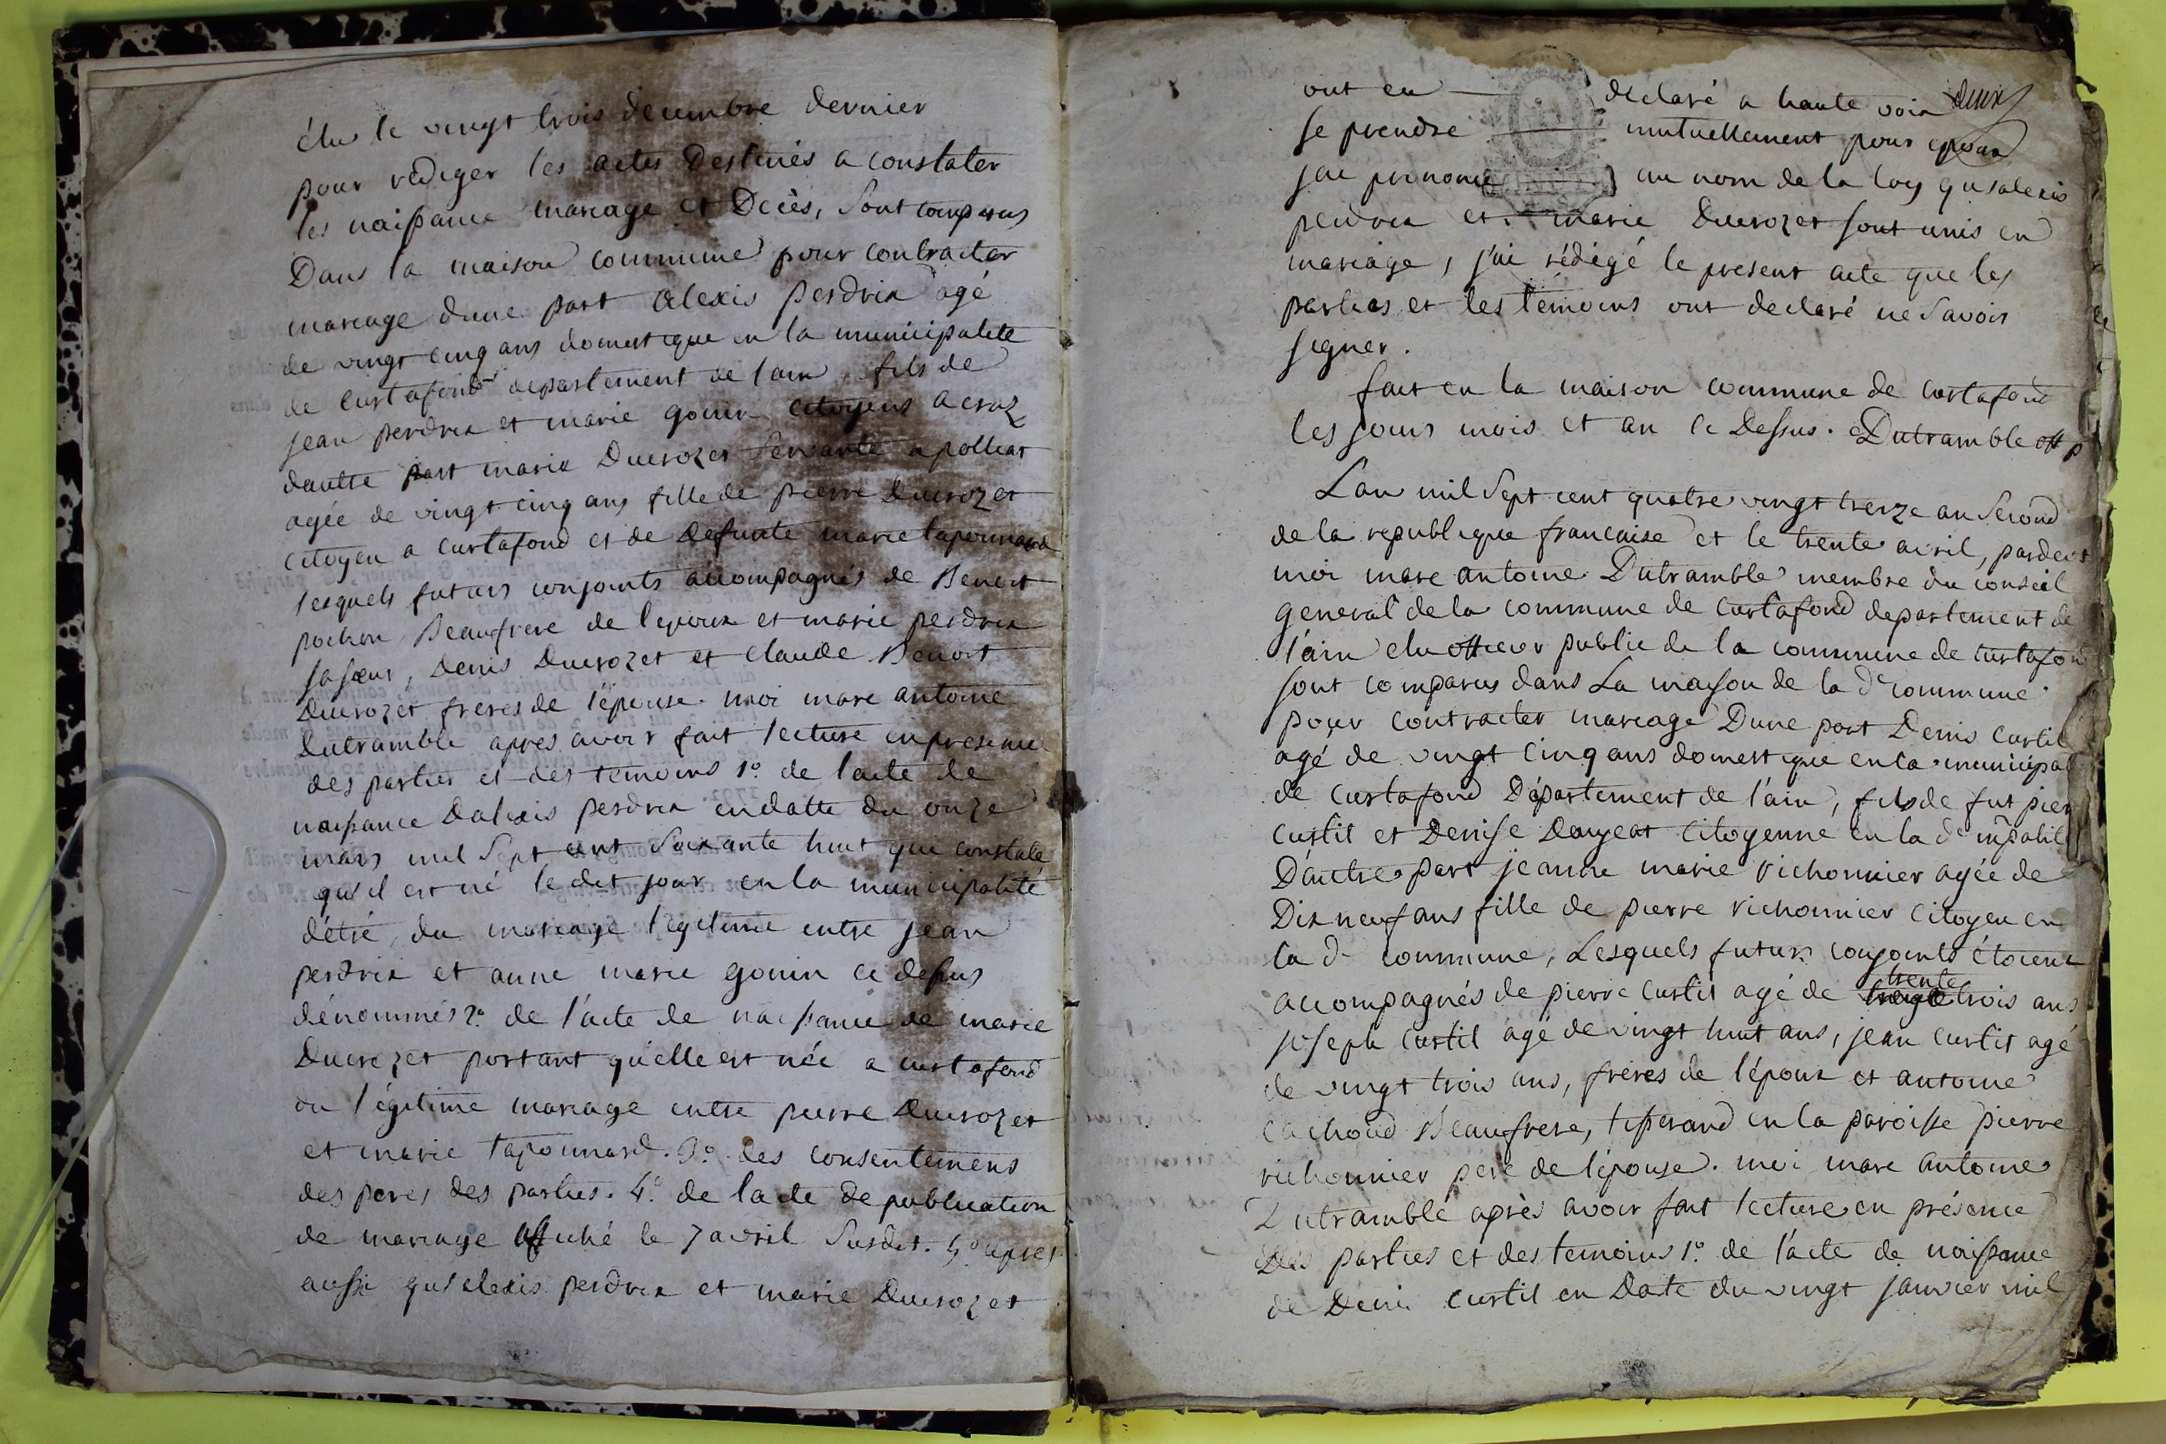 élu le vingt trois decembre dernier
pour rediger les actes Destinés a constater
les naissance mariage et Decès, Sont comparus
Dans la maison commune pour contracter
mariage dune part alexis perdrix agé
de vingt cinq ans domestique en la municipalité
de Curtafond departement de lain, fils de
jean perdrix et marie gouin citoyens a
dautre part marie Ducrozet Servante a polliat
agée de vingt cinq ans fille de pierre Ducrozet
citoyen a curtafond et de Defunte marie taponnard
lesquels futurs conjoints accompagnés de Benoit
pochon Beaufrere de lepoux et marie perdrix
sa sœur, Denis Ducrozet et Claude Benoit
Ducrozet freres de l'épouse. moi marc antoine
Dutramble apres avoir fait lecture en presence
des parties et des temoins 1.º de lacte de
naissance Dalexis perdrix en datte du onze
mars mil Sept cent Soixante huit qui constate
qu'il est né le dit jour en la municipalité
détré, du mariage légitime entre jean
perdrix et anne marie gouin ce dessus
dénommés 2.º de l'acte de naissance de marie
Ducrozet portant quelle est née a curtafond
du légitime mariage entre pierre Ducrozet
et marie taponnard. 3.º des consentemens
des peres des parties. 4.º de lacte de publication
de mariage affiché le 7 avril Susdit. 5.º apres
aussi qu'alexis perdrix et marie Ducrozet
ont eu declaré a haute voix deux
se prendre mutuellement pour epoux
jai prononcé au nom de la loy qu'alexis
perdrix et marie Ducrozet sont unis en
mariage, j'ai rédigé le present acte que les
parties et les témoins ont declaré ne Savoir
signer.
fait en la maison commune de curtafond
les jours mois et an ce Dessus. Dutramble off p
Lan mil Sept cent quatre vingt treize an Second
de la republique francaise et le trente avril, pardevt
moi marc antoine Dutramble membre du conseil
general de la commune de curtafond departement de
l'ain elu officier public de la commune de curtafond
sont comparus dans La maison de la de commune
pour contracter mariage Dune part Denis curtil
agé de vingt cinq ans domestique en la municipal
de curtafond Département de l'ain, fils de fut pier
curtil et Denise citoyenne en la de mpalit
D'autre part jeanne marie richonnier agée de
Dix neuf ans fille de pierre richonnier Citoyen en
la de commune, Lesquels futurs conjoints étoient
accompagnés de pierre curtil agé de trente trois ans
joseph curtil agé de vingt huit ans, jean curtil agé
de vingt trois ans, freres de l'époux et antoine
cachoud Beaufrere, tisserand en la paroisse pierre
richonnier pere de l'épouse. moi marc antoine
Dutramblé après avoir fait lecture en présence
Des parties et des temoins 1.º de l'acte de naissance
de Denis curtil en Date du vingt janvier mil